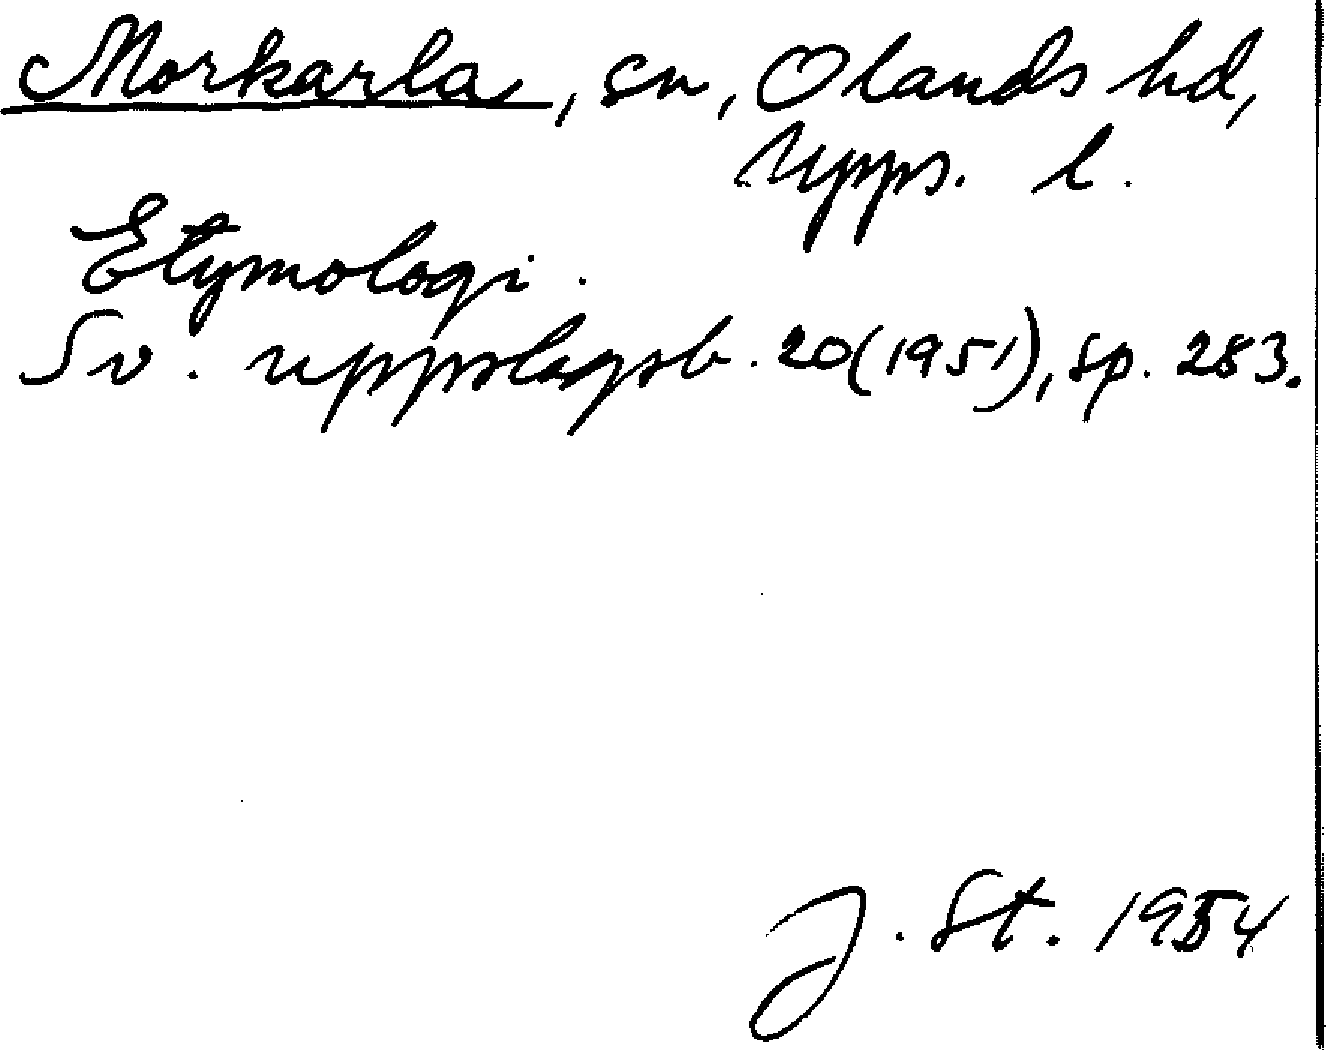 Morkarla, sn, Olands hd,
Upps. l.
Etymologi.
Sv. uppslagsb. 20(1951), sp. 283.
J. St. 1954